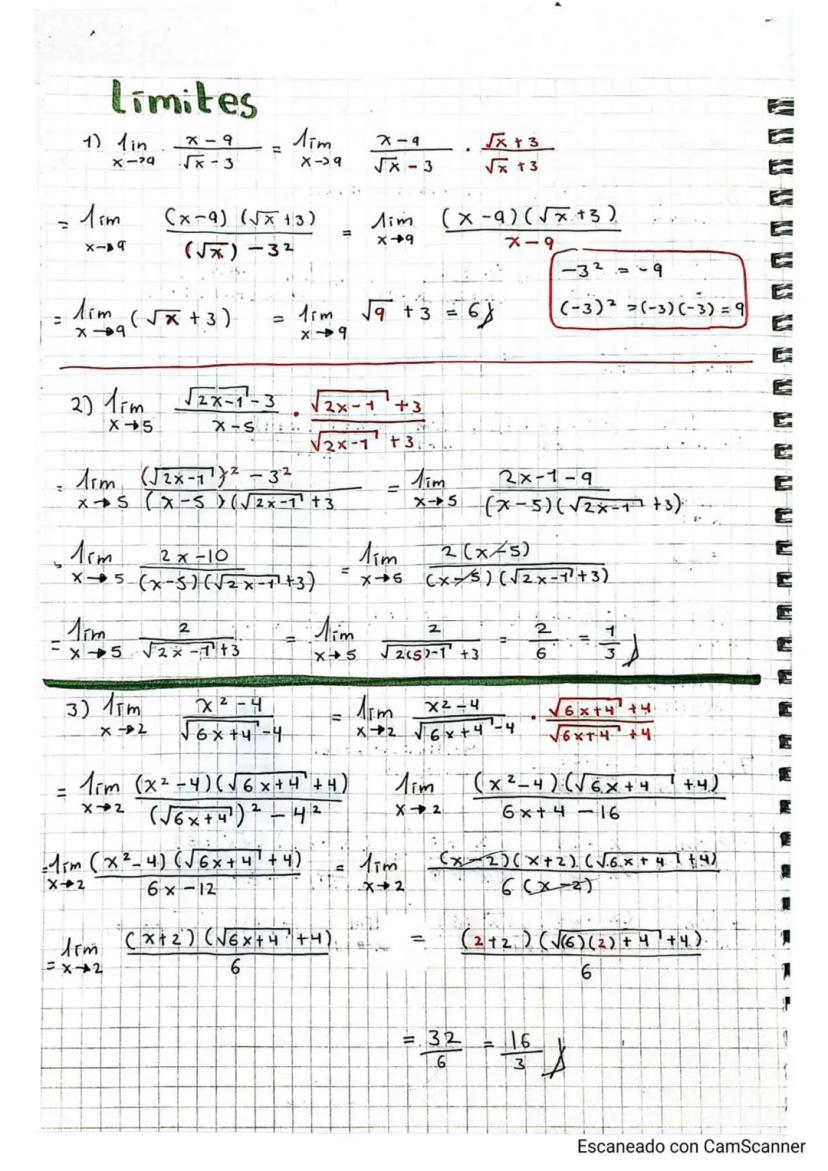 Límites
1) lim x→9 (x-9)/(√x - 3) = lím x→9 (x-9)/(√x - 3) · (√x + 3)/(√x + 3)
= lím x→9 (x-9)(√x + 3)/((√x) - 3²) = lím x→9 (x-9)(√x + 3)/(x-9)
-3² = -9
(-3)² = (-3)(-3) = 9
= lím x→9 (√x + 3) = lím x→9 √9 + 3 = 6
2) lím x→5 (√(2x-1) - 3)/(x-5) · (√(2x-1) + 3)/(√(2x-1) + 3)
= lím x→5 ((√(2x-1))² - 3²)/((x-5)(√(2x-1) + 3 = lím x→5 (2x-1-9)/((x-5)(√(2x-1) + 3))
= lím x→5 (2x-10)/((x-5)(√(2x-1) + 3)) = lím x→5 2(x-5)/((x-5)(√(2x-1) + 3))
= lím x→5 2/(√(2x-1) + 3) = lím x→5 2/(√(2(5)-1) + 3) = 2/6 = 1/3
3) lím x→2 (x²-4)/(√(6x+4) - 4) = lím x→2 (x²-4)/(√(6x+4) - 4) · (√(6x+4) + 4)/(√(6x+4) + 4)
= lím x→2 (x²-4)(√(6x+4) + 4)/((√(6x+4))² - 4²) lím x→2 (x²-4)(√(6x+4) + 4)/(6x+4-16)
= lím x→2 (x²-4)(√(6x+4) + 4)/(6x-12) = lím x→2 (x-2)(x+2)(√(6x+4) + 4)/(6(x-2))
= lím x→2 (x+2)(√(6x+4) + 4)/6 = (2+2)(√((6)(2)+4) + 4)/6
= 32/6 = 16/3
Escaneado con CamScanner